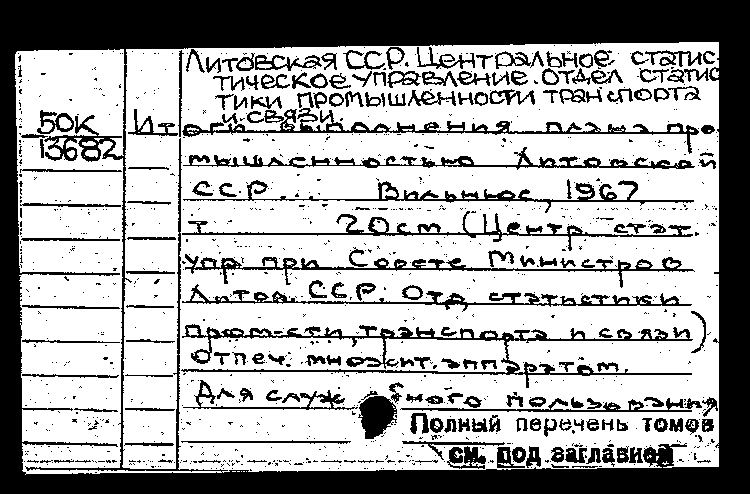 Литовская ССР. Центральное статис-
тическое управление. Отдел статис
тики промышленности транспорта
и связи.
50К Итоги выполнения плана про-
13682 мышленностью Литовской
ССР... Вильнюс, 1967
т 20см (Центр. стат.
упр при Совете Министров
Литов. ССР. Отд. статистики
пром-сти, транспорта и связи).
Отпеч. множит. аппаратом.
Для служебного пользования
Полный перечень томов
см. под заглавием